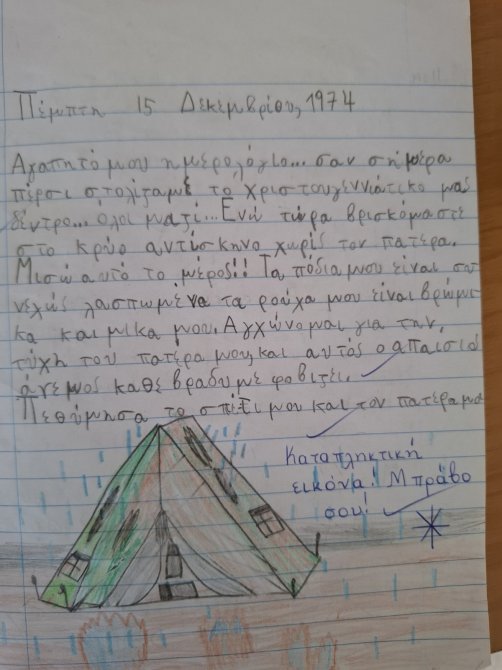 Πέμπτη 15 Δεκεμβρίου, 1974
Αγαπητό μου ημερολόγιο... σαν σήμερα
πέρσι στολίζαμε το χριστουγεννιάτικο μας
δέντρο... όλοι ματί... Ενώ τώρα βρισκόμαστε
στο κρύο αντίσκηνο χωρίς τον πατέρα.
Μισώ αυτό το μέρος!! Τα πόδια μου είναι συ
νεχώς λασπωμένα τα ρούχα μου είναι βρώμι
κα και μικα μου. Αγχώνομαι για την,
τύχη του πατέρα μου, και αυτός ο απαισιό
άνεμος καθε βραδυ με φοβιτει.
Πεθύμησα το σπίτι μου και τον πατέραμα
Καταπληκτική
εικόνα! Μπράβο
σου!